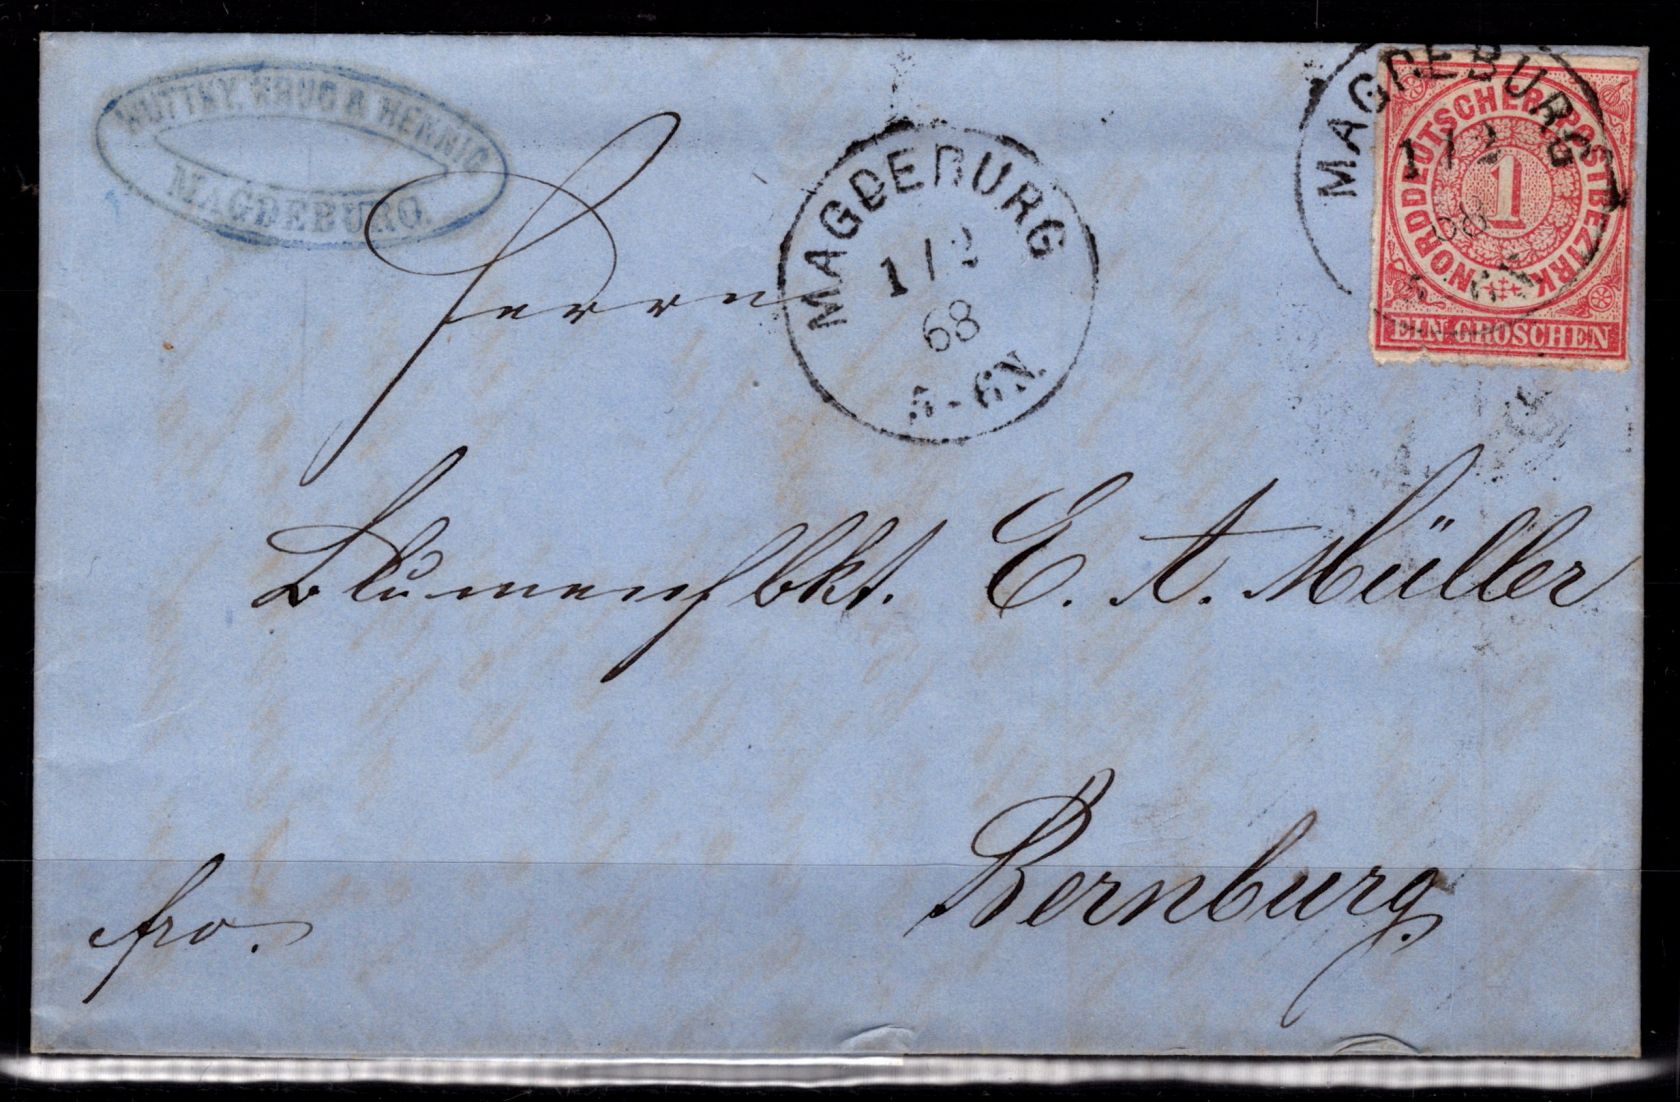 KRUG & HENNIG
MAGDEBURG.
MAGDEBURG
1/2
68
5-6N.
MAGDEBURG
1/2
68
NORDDEUTSCHER POSTBEZIRK
1
EIN GROSCHEN
Herrn
E. A. Müller
Bernburg.
fro.